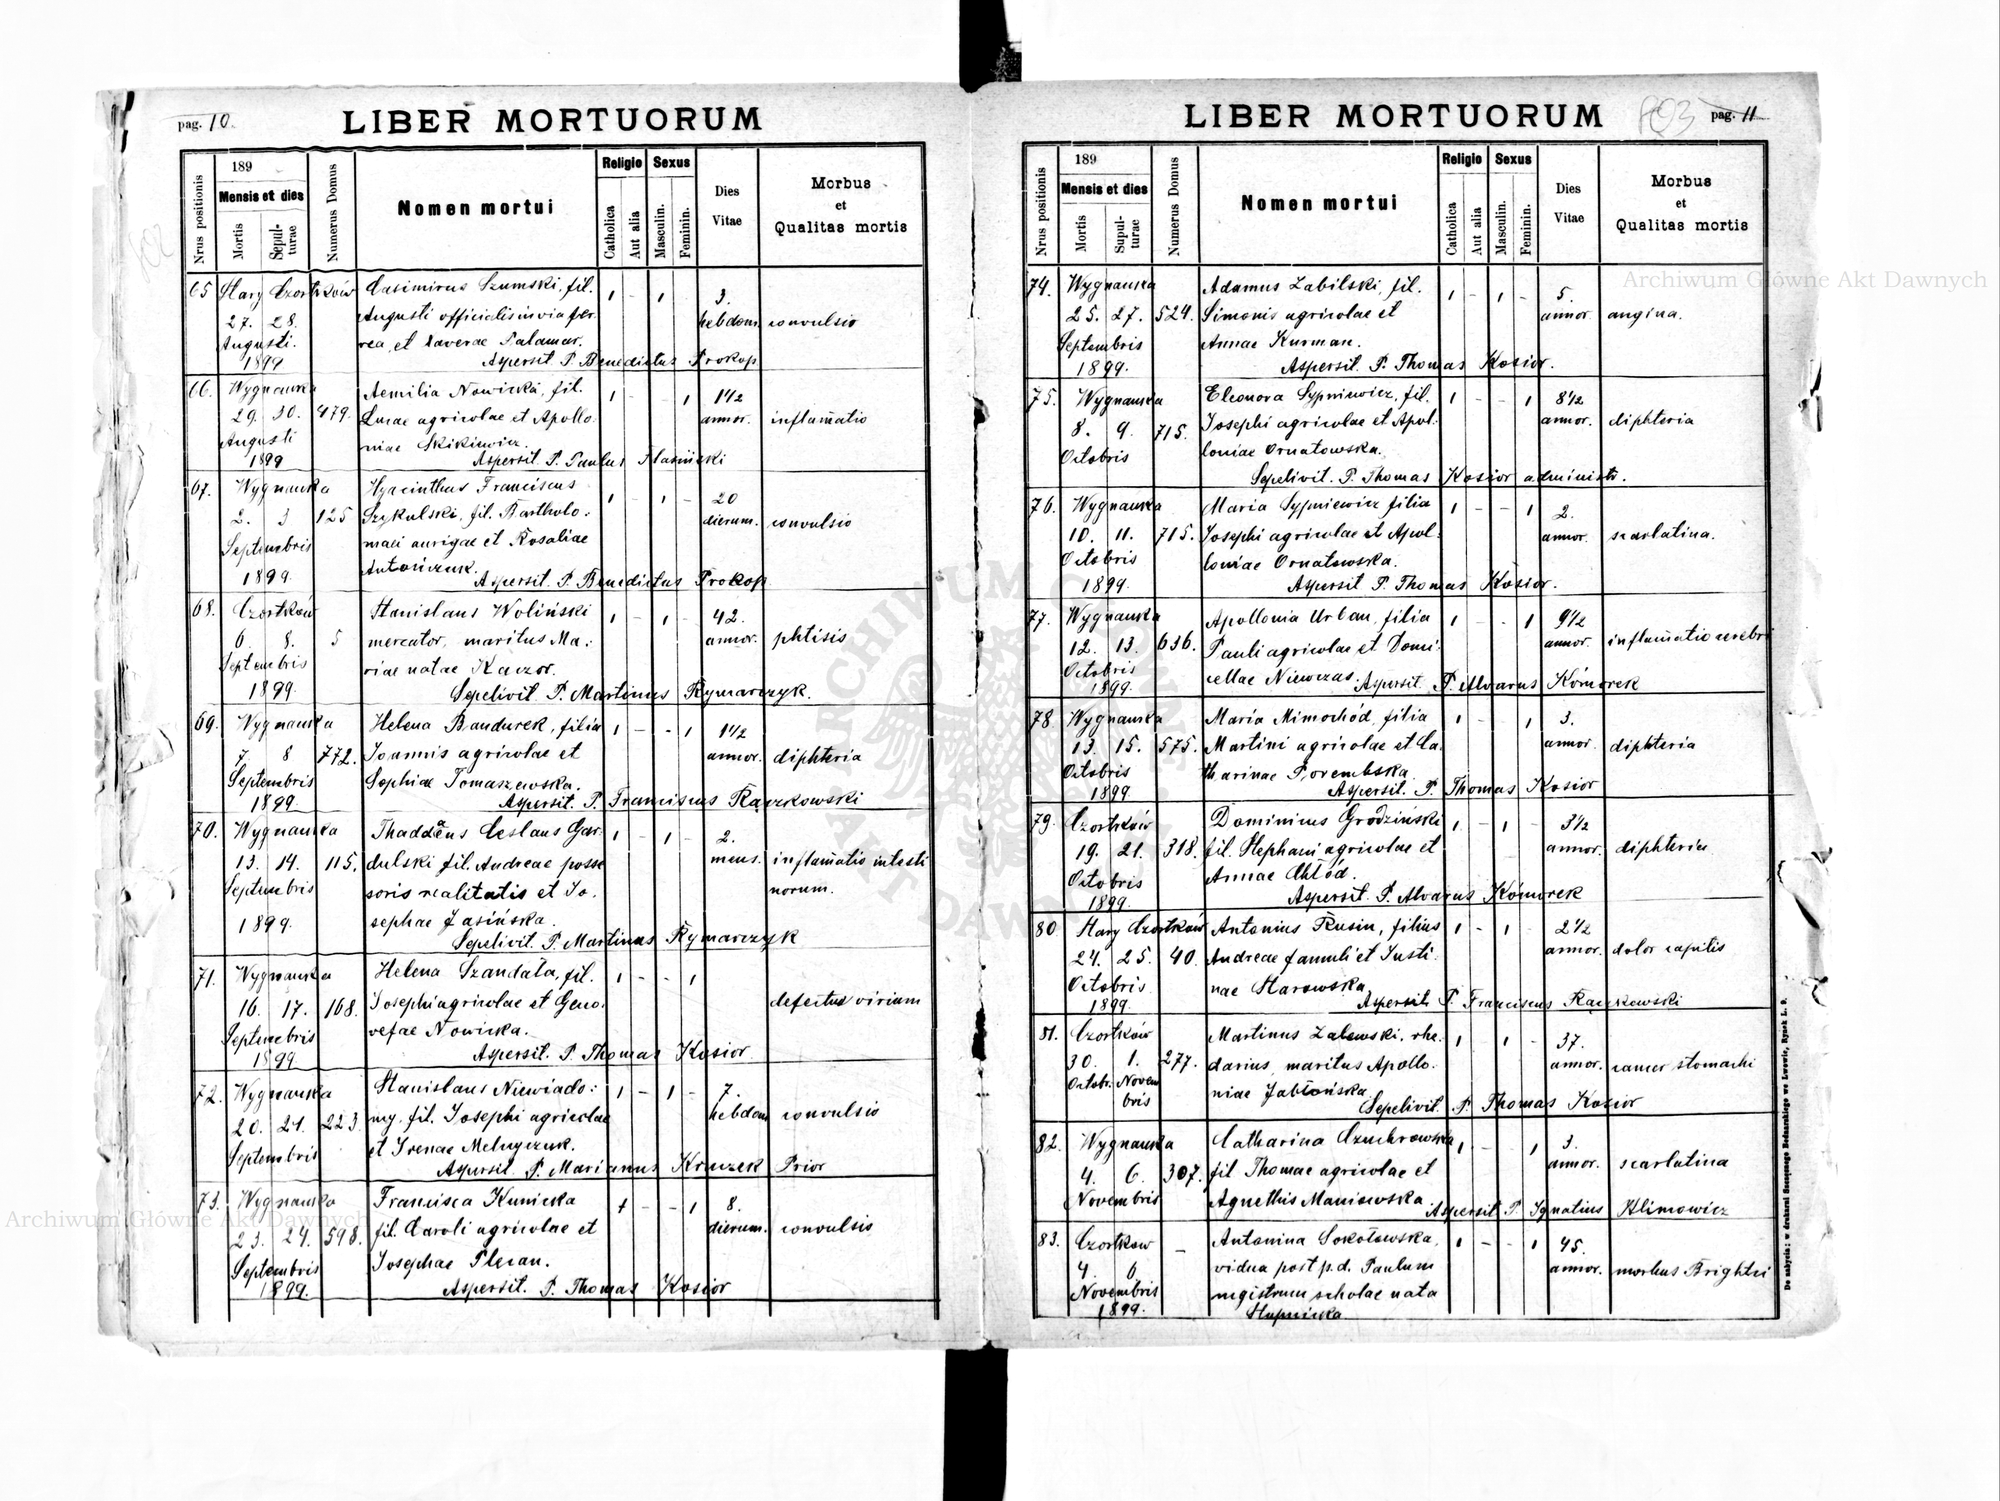 pag. 10.
LIBER MORTUORUM
Nrus positionis
189
Mensis et dies
Mortis
Sepul-
turae
Numerus Domus
Nomen mortui
Religio
Catholica
Aut alia
Sexus
Masculin.
Feminin.
Dies
Vitae
Morbus
et
Qualitas mortis
65 Stary Czortków Casimirus Szumski, fil. 1 - 1 3.
27. 28. Augusti officialis in via fer hebdom. convulsio
Augusti. rea, et Xaverae Palamar.
1899 Aspersit P. Benedictus Prokop.
66. Wygnanka Aemilia Nowicka, fil. 1 1 1 1/2
29. 30. 479. Lucae agricolae et Apollo annor. inflam̃atio
Augusti niae Skikiewicz.
1899 Aspersit. P. Paulus
67. Wygnanka Hyacinthus Franciscus 1 - 1 - 20
2. 3 125 Szykulski, fil. Bartholo: dierum. convulsio
Septembris maei aurigae et Rosaliae
1899. Antończuk. Aspersit. P. Benedictus Prokop
68. Czortków Stanislaus Woliński 1 - 1 - 42.
6. 8. 5 mercator, maritus Ma: annor. phtisis
Septembris riae natae Kaczor.
1899. Sepelivit P. Martinus Rymarczyk.
69. Wygnanka Helena Bandurek, filia 1 - - 1 1 1/2
7. 8 772. Joannis agricolae et annor. diphteria
Septembris Sophiae Tomaszewska.
1899. Aspersit. P. Franciscus Rączkowski
70. Wygnanka Thaddaeus Ceslaus Gar- 1 - 1 - 2.
13. 14. 115. dulski fil. Andreae posse mens. inflam̃atio intesti
Septembris soris realitatis et Jo. norum.
1899. sephae Jasińska.
Sepelivit. P. Martinus Rymarczyk
71. Wygnanka Helena Szandała, fil. 1 - 1
16. 17. 168. Josephi agricolae et Geno. defectus virium
Septembris vefae Nowicka.
1899 Aspersit. P. Thomas Kosior
72. Wygnanka Stanislaus Niewiado: 1 - 1 - 7.
20. 21. 223. my. fil. Josephi agricolae hebdom convulsio
Septembris et Irenae Melnyczuk.
Aspersit. P. Marianus Kruczek Prior
73. Wygnanka Francisca Kunicka 1 - - 1 8.
23. 24. 598. fil. Caroli agricolae et dierum. convulsio
Septembris Josephae Plecan.
1899. Aspersit. P. Thomas Kosior
LIBER MORTUORUM
pag. 11
Nrus positionis
189
Mensis et dies
Mortis
Supul-
turae
Numerus Domus
Nomen mortui
Religio
Catholica
Aut alia
Sexus
Masculin.
Feminin.
Dies
Vitae
Morbus
et
Qualitas mortis
74. Wygnanka Adamus Zabilski, fil. 1 - 1 - 5.
25. 27. 524. Simonis agricolae et annor. angina.
Septembris Annae Kurman.
1899. Aspersit. P. Thomas Kosior.
75. Wygnanka Eleonora Sypniewicz, fil. 1 - - 1 8 1/2
8. 9. 715. Josephi agricolae et Apol: annor. diphteria
Octobris loniae Ornatowska.
Sepelivit. P. Thomas Kosior administr.
76. Wygnanka Maria Sypniewicz filia 1 - - 1 2.
10. 11. 715. Josephi agricolae et Apol: annor. scarlatina.
Octobris loniae Ornatowska.
1899. Aspersit P. Thomas Kosior.
77. Wygnanka Apollonia Urban, filia 1 - - 1 9 1/2
12. 13. 636. Pauli agricolae et Domi: annor. inflam̃atio cerebri
Octobris cellae Niewczas.
1899. Aspersit. P. Alvarus Kómorek
78. Wygnanka Maria Mimochód, filia 1 - 1 3.
13. 15. 575. Martini agricolae et Ca. annor. diphteria
Octobris tharinae Porembska.
1899 Aspersit. P. Thomas Kosior
79. Czortków Dominicus Grodziński 1 - 1 - 3 1/2
19. 21. 318. fil. Stephani agricolae et annor. diphteria
Octobris Annae Chłód.
1899. Aspersit. P. Alvarus Kómorek
80 Stary Czortków Antonius Rusin, filius 1 - 1 - 2 1/2
24. 25. 40. Andreae famuli et Justi: annor. dolor capitis
Octobris nae Starowska
1899. Aspersit P. Franciscus Rączkowski
81. Czortków Martinus Zalewski, rhe. 1 - 1 - 37.
30. 1. 277. darius, maritus Apollo. annor. cancer stomachi
Octobr. Novem niae Jabłońska
bris Sepelivit. P. Thomas Kosior
82. Wygnanka Catharina Czuchrowska 1 - - 1 3.
4. 6. 307. fil Thomae agricolae et annor. scarlatina
Novembris Agnethis Maniowska. Aspersit P. Ignatius Klimowicz
83. Czortków - Antonina Sokołowska, 1 - - 1 45.
4. 6 vidua post p.d. Paulum annor. morbus Brightii
Novembris magistrum scholae nata
1899. Słupnicka
Do nabycia: w drukarni Szczęsnego Bednarskiego we Lwowie, Rynek L. 9.
Archiwum Główne Akt Dawnych
Archiwum Główne Akt Dawnych
ARCHIWUM GŁÓWNE AKT DAWNYCH